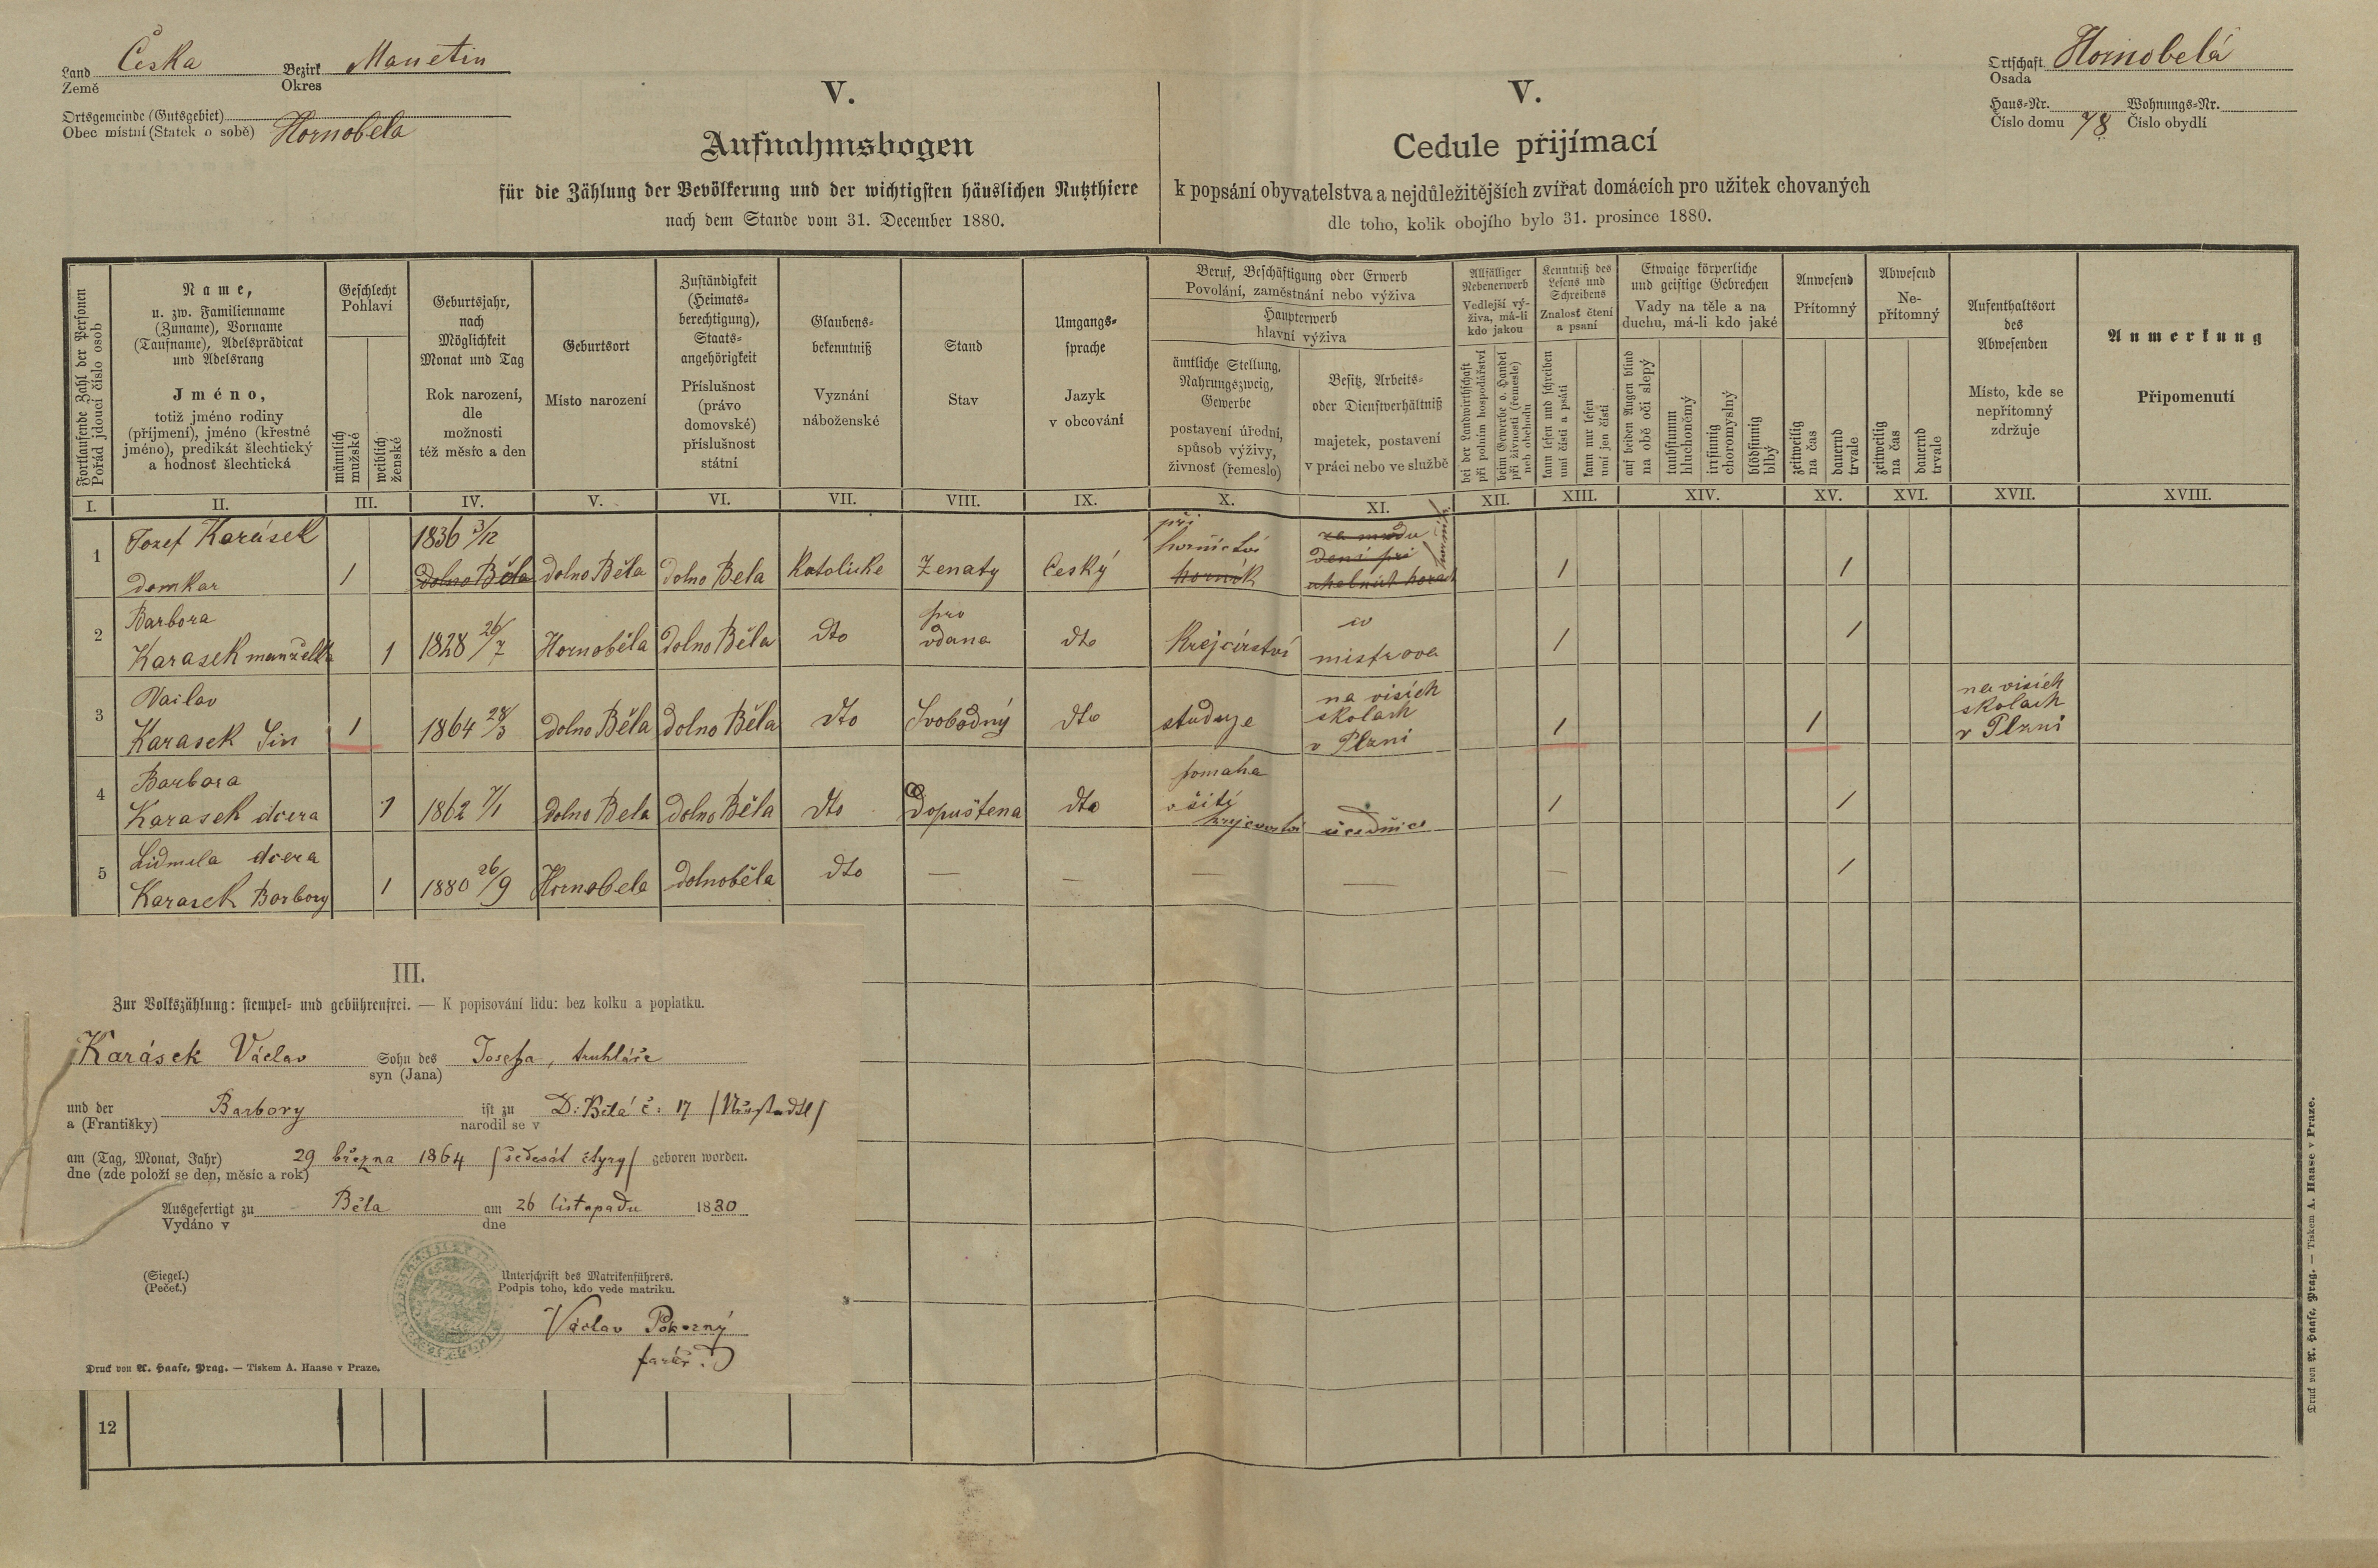 Land
Země
Česka
Bezirk
Okres
Manetin
Ortsgemeinde (Gutsgebiet)
Obec místní (Statek o sobě)
Hornobela
Ortschaft
Osada
Hornobelá
Haus-Nr.
Číslo domu
78
Wohnungs-Nr.
Číslo obydlí
V.
Aufnahmsbogen
für die Zählung der Bevölkerung und der wichtigsten häuslichen Nutzthiere
nach dem Stande vom 31. December 1880.
V.
Cedule přijímací
k popsání obyvatelstva a nejdůležitějších zvířat domácích pro užitek chovaných
dle toho, kolik obojího bylo 31. prosince 1880.
Fortlaufende Zahl der Personen
Pořád jdoucí číslo osob
Name,
u. zw. Familienname
(Zuname), Vorname
(Taufname), Adelsprädicat
und Adelsrang
Jméno,
totiž jméno rodiny
(příjmení), jméno (křestné
jméno), predikát šlechtický
a hodnosť šlechtická
Geschlecht
Pohlaví
männlich
mužské
weiblich
ženské
Geburtsjahr,
nach
Möglichkeit
Monat und Tag
Rok narození,
dle
možnosti
též měsíc a den
Geburtsort
Místo narození
Zuständigkeit
(Heimats-
berechtigung),
Staats-
angehörigkeit
Příslušnost
(právo
domovské)
příslušnost
státní
Glaubens-
bekenntniß
Vyznání
náboženské
Stand
Stav
Umgangs-
sprache
Jazyk
v obcování
Beruf, Beschäftigung oder Erwerb
Povolání, zaměstnání nebo výživa
Haupterwerb
hlavní výživa
ämtliche Stellung,
Nahrungszweig,
Gewerbe
postavení úřední,
spůsob výživy,
živnosť (řemeslo)
Besitz, Arbeits-
oder Dienstverhältniß
majetek, postavení
v práci nebo ve službě
Allfälliger
Nebenerwerb
Vedlejší vý-
živa, má-li
kdo jakou
bei der Landwirthschaft
při polním hospodářství
beim Gewerbe o. Handel
při živnosti (řemesle)
neb obchodu
Kenntniß des
Lesens und
Schreibens
Znalosť čtení
a psaní
kann lesen und schreiben
umí čísti a psáti
kann nur lesen
umí jen čísti
Etwaige körperliche
und geistige Gebrechen
Vady na těle a na
duchu, má-li kdo jaké
auf beiden Augen blind
na obě oči slepý
taubstumm
hluchoněmý
irrsinnig
choromyslný
blödsinnig
blbý
Anwesend
Přítomný
zeitweilig
na čas
dauernd
trvale
Abwesend
Ne-
přítomný
zeitweilig
na čas
dauernd
trvale
Aufenthaltsort
des
Abwesenden
Místo, kde se
nepřítomný
zdržuje
Anmerkung
Připomenutí
I. II. III. IV. V. VI. VII. VIII. IX. X. XI. XII. XIII. XIV. XV. XVI. XVII. XVIII.
1
Jozef Karásek
domkar
1
1836 3/12
Dolno Běla
dolno Běla
dolno Bela
Katolicke
Ženaty
Český
při
hornictvi
hornik
1
1
2
Barbora
Karasek manželka
1
1828 26/7
Hornoběla
dolno Běla
dto
pro
vdana
dto
Krejcírství
mistrova
1
1
3
Vaclav
Karasek Sin
1
1864 28/3
dolno Běla
dolno Běla
dto
Svobodný
dto
studuje
na visich
skolach
v Plzni
1
1
na visich
skolach
v Plzni
4
Barbora
Karasek dcera
1
1862 7/1
dolno Bela
dolno Běla
dto
Dopuštena
dto
pomaha
v šití
1
1
5
Lidmila dcera
Karasek Barbory
1
1880 26/9
Hornobela
dolnoběla
dto
—
—
—
—
—
1
III.
Zur Volkszählung: stempel- und gebührenfrei. — K popisování lidu: bez kolku a poplatku.
Karásek Václav
Sohn des
syn (Jana)
Josefa, truhláře
und der
a (Františky)
Barbory
ist zu
narodil se v
D: Bělá č: 17
am (Tag, Monat, Jahr)
dne (zde položí se den, měsíc a rok)
29 března 1864 /šedesát čtyry/
geboren worden.
Ausgefertigt zu
Vydáno v
Běla
am
dne
26 listopadu 1880
(Siegel.)
(Pečeť.)
Unterschrift des Matrikenführers.
Podpis toho, kdo vede matriku.
Václav Pokorný
farář.
Druck von A. Haase, Prag. — Tiskem A. Haase v Praze.
12
Druck von A. Haase, Prag. — Tiskem A. Haase v Praze.